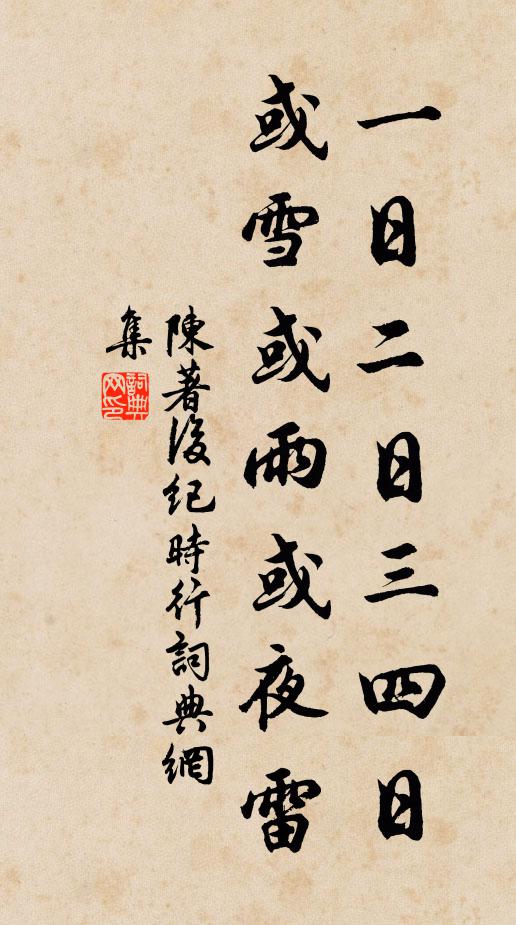 一日二日三四日
或雪或雨或夜雷
陳著後紀時行詞典網
集
詞典網印